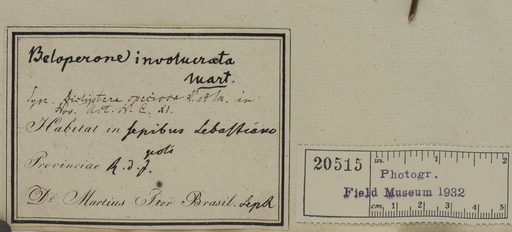 Beloperone involucrata
Mart.
Syn. Dicliptera speciosa N. et M. in
Nov. Act. N. C. XI.
Habitat in sepibus Sebastiano
polis
Provinciae R. d. J.
Dr Martius Iter Brasil. Sept
20515
in. 1 2
Photogr.
Field Museum 1932
cm. 1 2 3 4 5